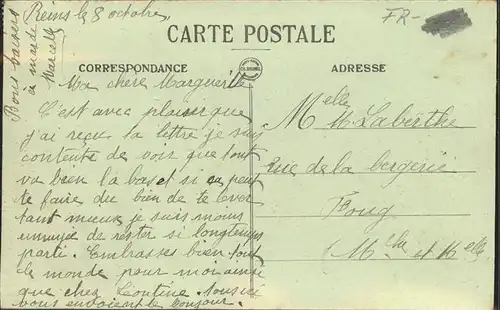 Reims le 8 octobre
FR-
Bons baisers
à maede
Marcelle
CARTE POSTALE
CORRESPONDANCE
ADRESSE
Ma chère Marguerite
C'est avec plaisir que
j'ai reçu la lettre je suis
contente de voir que tout
va bien la bas et si ça peut
te faire du bien de te lever
tant mieux je suis moins
ennuyée de rester si longtemps
parti. Embrasses bien tout
le monde pour moi ainsi
que chez Léontine. tous ici
vous envoient le bonjour.
Melle M. Laberthe
Rue de la bergerie
Foug
Mthe et Melle